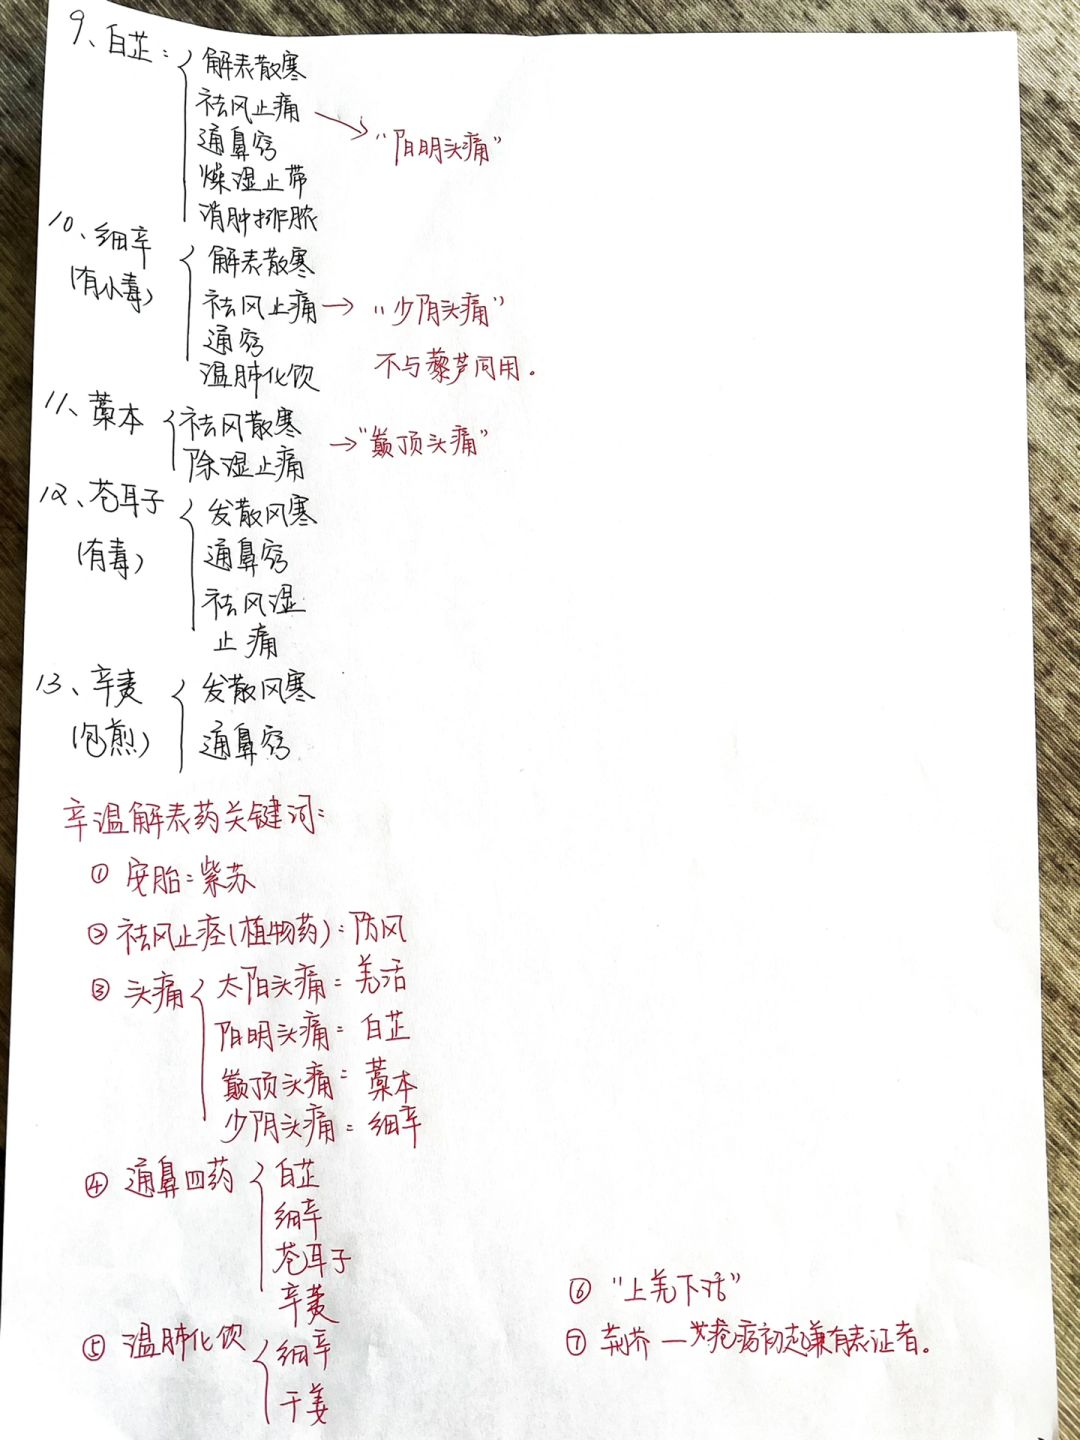 9、白芷：
解表散寒
祛风止痛 → “阳明头痛”
通鼻窍
燥湿止带
消肿排脓
10、细辛
(有小毒)
解表散寒
祛风止痛 → “少阴头痛”
通窍
温肺化饮
不与藜芦同用.
11、藁本
祛风散寒
除湿止痛
→ “巅顶头痛”
12、苍耳子
(有毒)
发散风寒
通鼻窍
祛风湿
止痛
13、辛荑
(包煎)
发散风寒
通鼻窍
辛温解表药关键词:
① 安胎:紫苏
② 祛风止痉(植物药):防风
③ 头痛
太阳头痛: 羌活
阳明头痛: 白芷
巅顶头痛: 藁本
少阴头痛: 细辛
④ 通鼻四药
白芷
细辛
苍耳子
辛荑
⑤ 温肺化饮
细辛
干姜
⑥ “上羌下活”
⑦ 荆芥 — 疮疡初起兼有表证者。